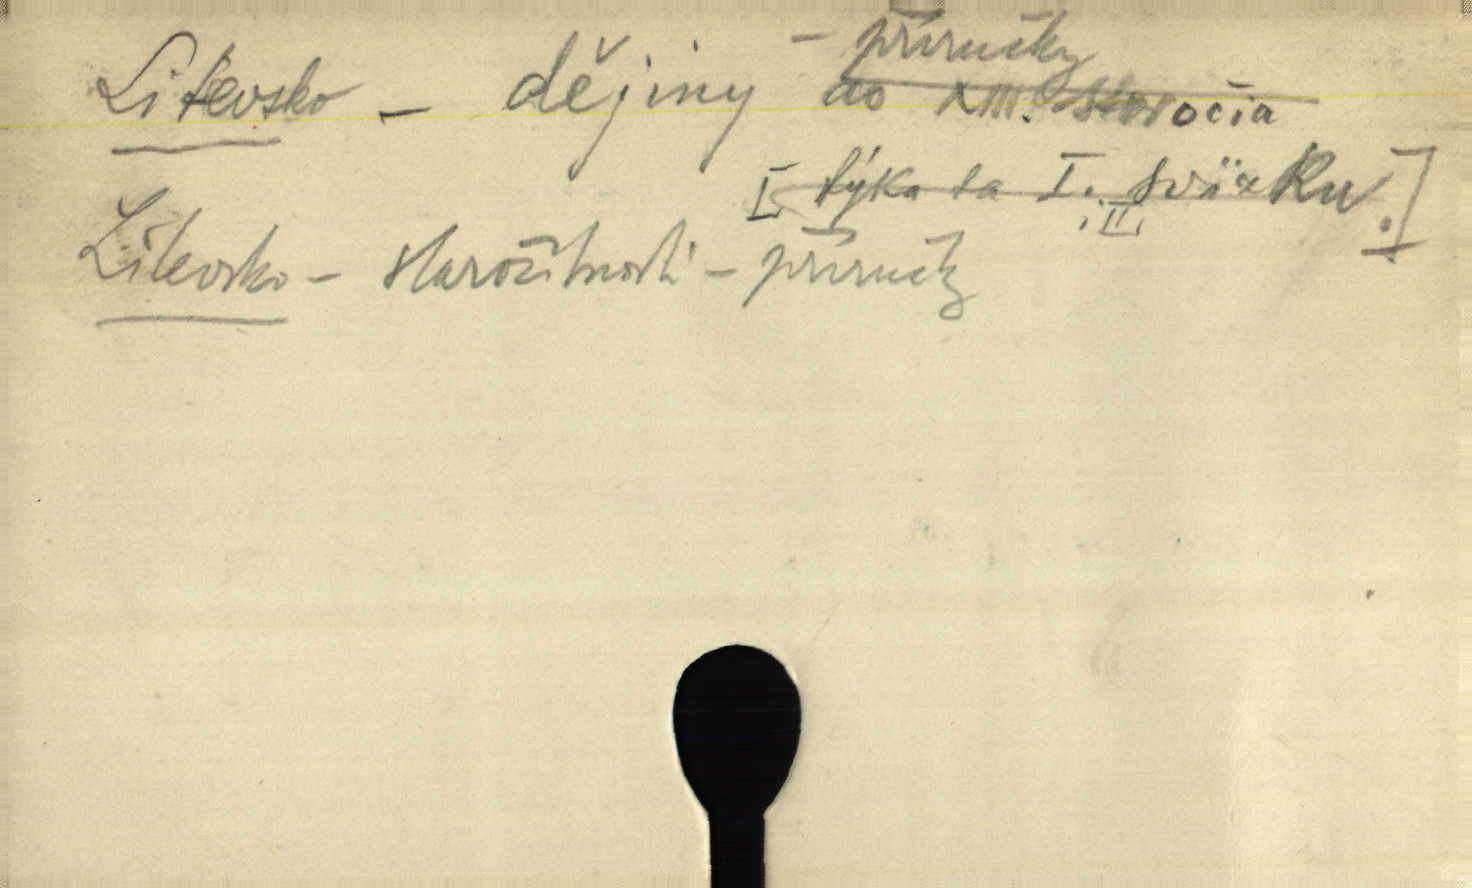 Litevsko - dějiny - příručky
do XIII. storočia
[týka sa I. sväzku.]
, II,
Litevsko - starožitnosti - příručky